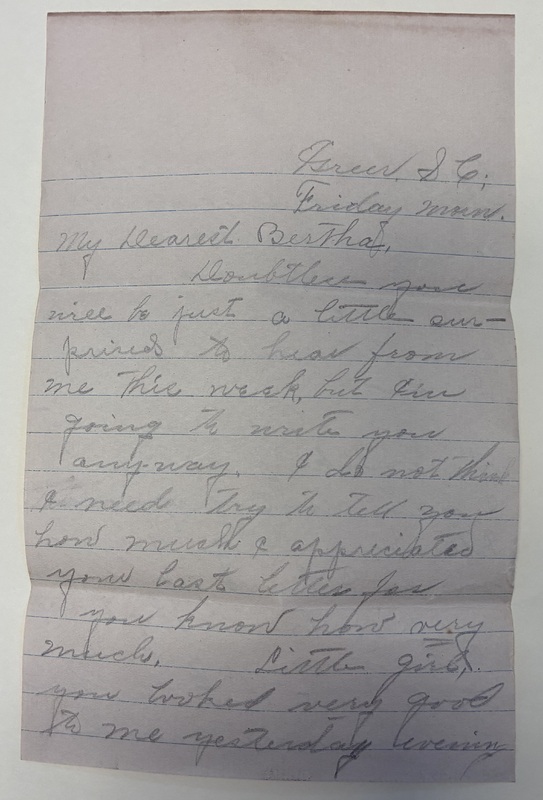 Greer, S.C.,
Friday morn.
My Dearest Bertha,
Doubtless you
will be just a little sur-
prised to hear from
me this week, but I'm
going to write you
any-way. I do not think
I need try to tell you
how much I appreciated
your last letter for
you know how very
much. Little girl,
you looked very good
to me yesterday evening